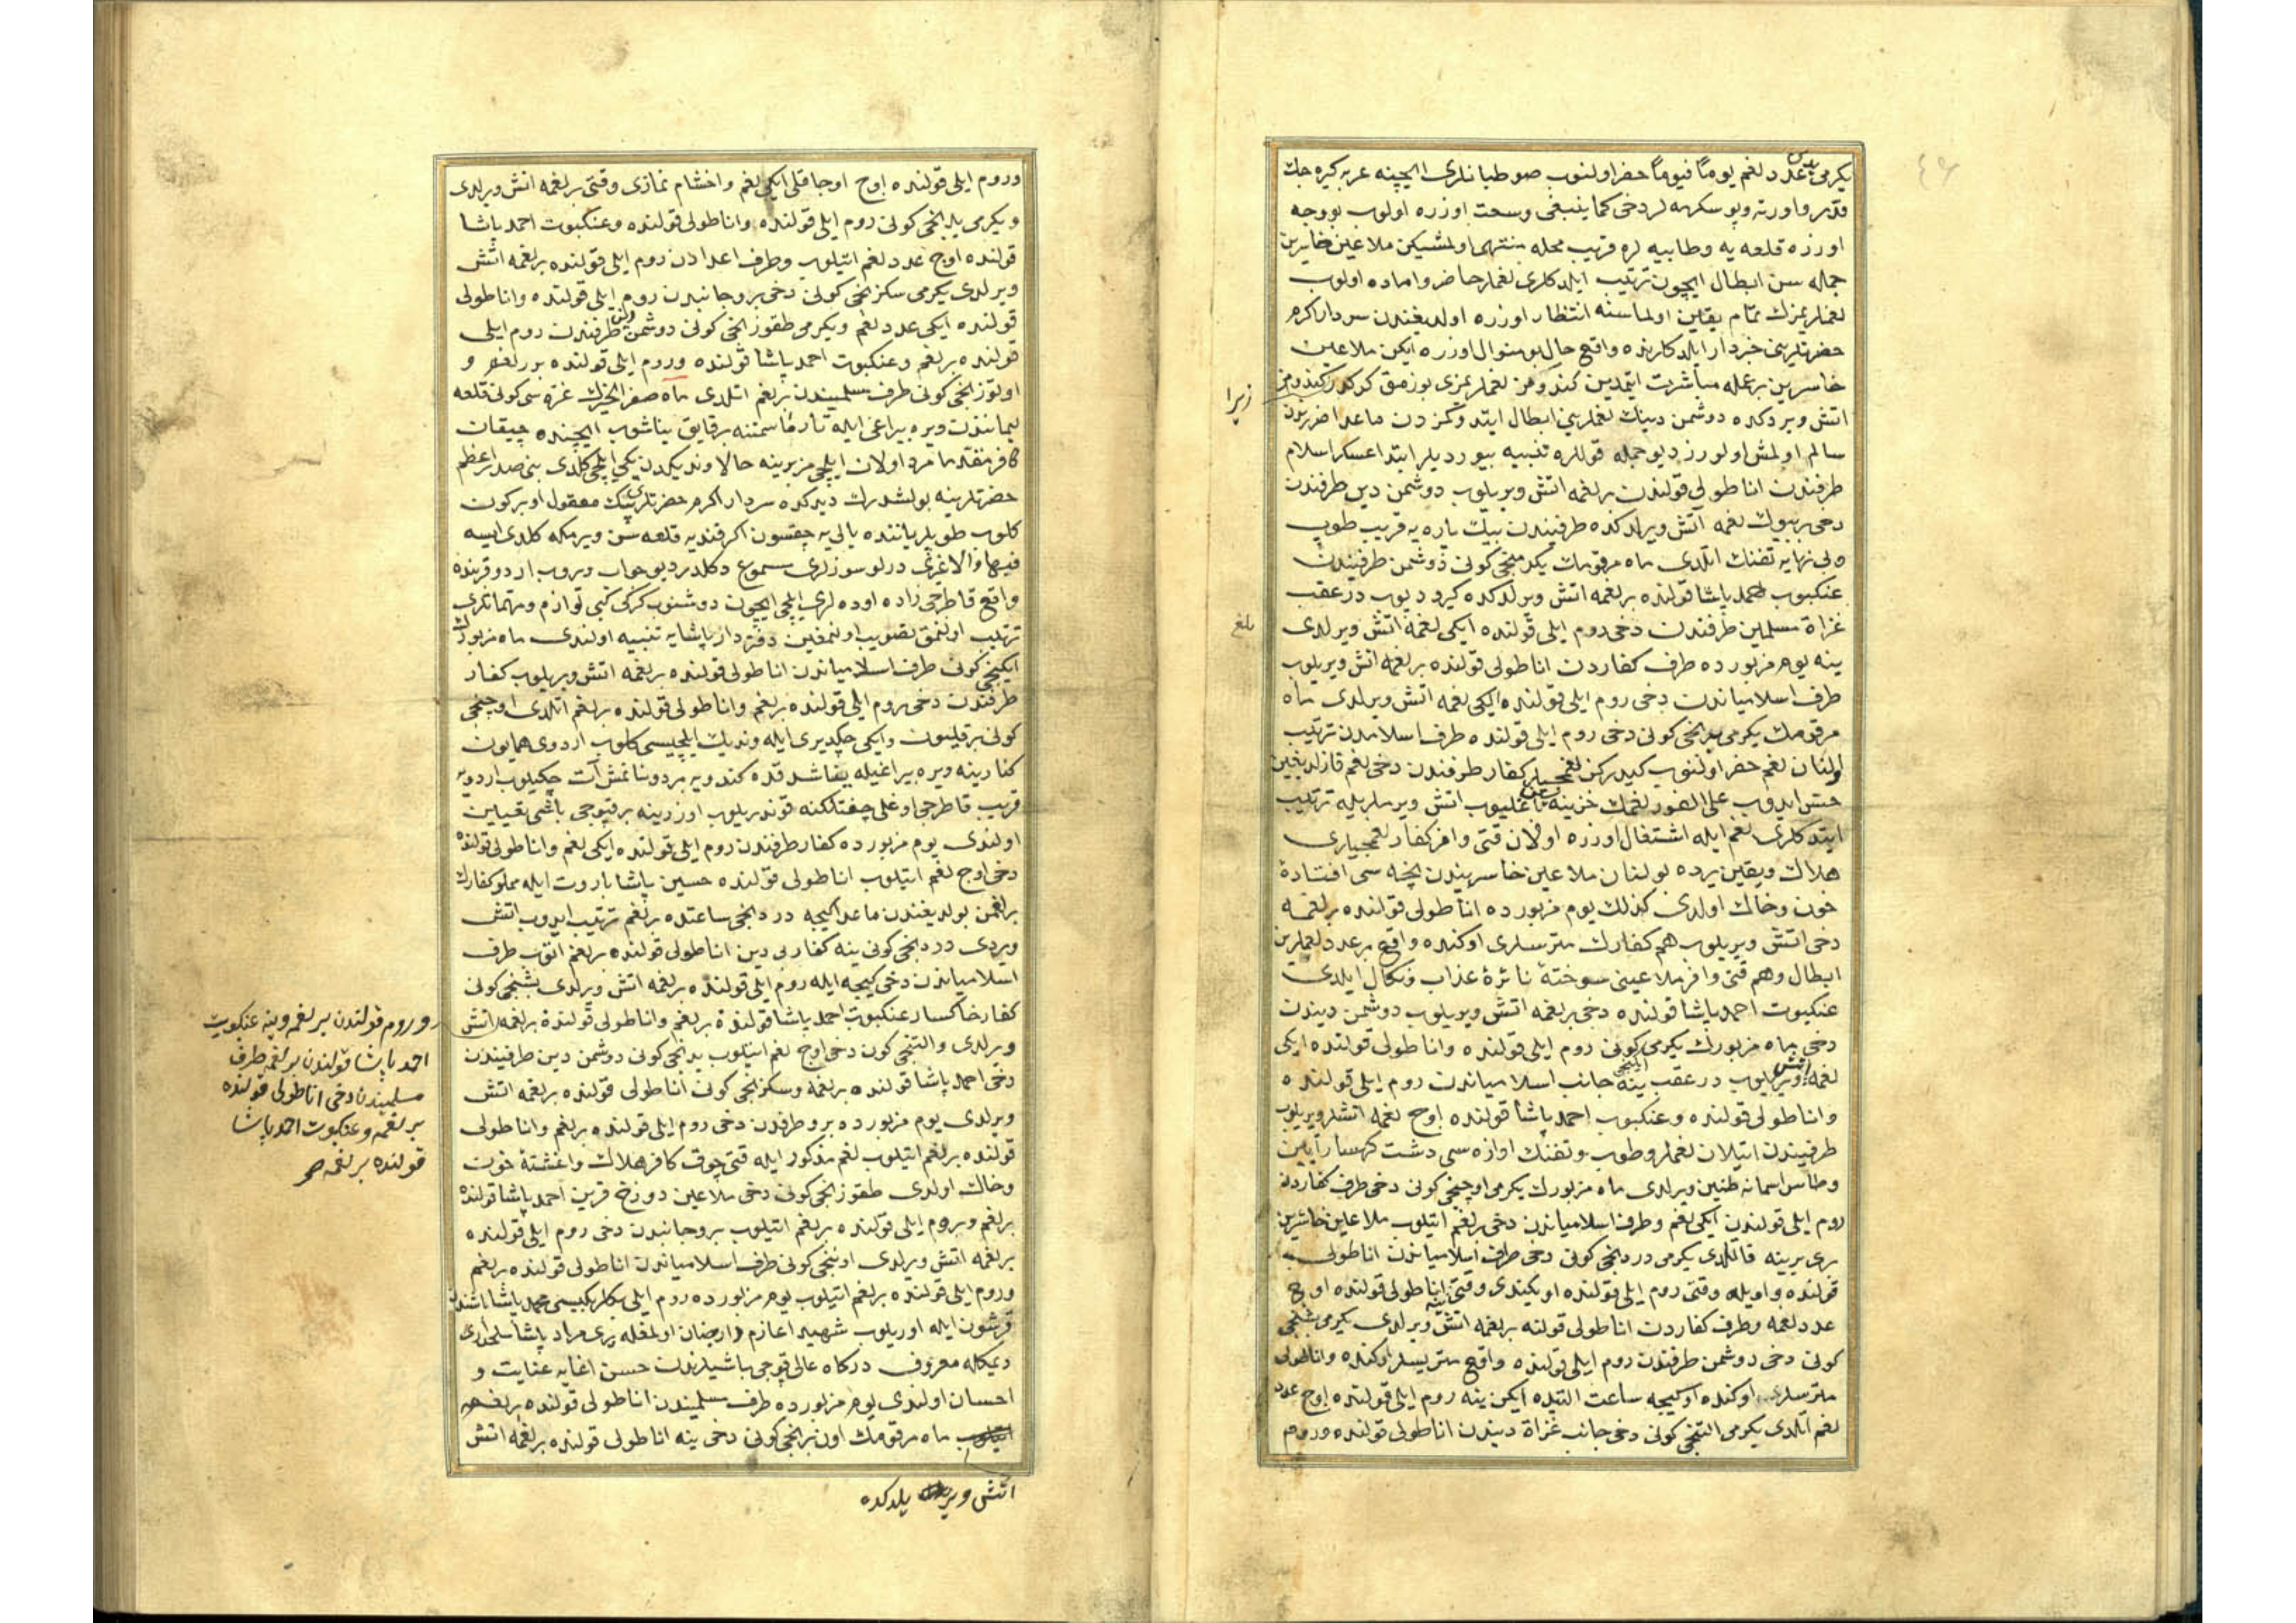 يكرمى يدى عدد لغم يوماً فيوماً حفر اولنوب صو طبانلرى ايچينه عربه كيره جك
قدر و اورته و يوسكهه لر دخى كما ينبغى وسعت اوزره اولوب بو وجه
اوزره قلعه يه و طابيه لره قريب محله منتهى اولمشيكن ملاعين خاسرين
جمله سن ابطال ايچون ترتيب ايلدكلرى لغملر حاضر و اماده اولوب
لغملريمزك تمام يقين اولماسنه انتظار اوزره اولديغندن سردار اكرم
حضرتلرينى خبردار ايلدكلرنده واقع حال بو منوال اوزره ايكن ملاعين
خاسرين بر عمله مباشرت ايتمدين كندومز لغملريمزى بوزمق كركدر زيرا كندومز
اتش ويردكده دوشمن دينك لغملرينى ابطال ايتدوكمزدن ماعدا ضرريندن
سالم اولمش اولورز ديو جمله قوللره تنبيه بيورديلر ابتدا عسكر اسلام
طرفندن اناطولى قولندن بر لغمه اتش ويريلوب دوشمن دين طرفندن
دخى بر بيوك لغمه آتش ويرلدكده طرفيندن بيك پاره يه قريب طوپ
و بى نهايه تفنك اتلدى ماه مرقومك يكرمنجى كونى دوشمن طرفيندن
عنكبوت احمد پاشا قولنده بر لغمه اتش ويرلدكده كيرو ديوب در عقب
غزاة مسلمين طرفندن دخى روم ايلى قولنده ايكى لغمه اتش ويرلدى
ينه يوم مزبورده طرف كفاردن اناطولى قولنده بر لغمه اتش ويريلوب
طرف اسلامياندن دخى روم ايلى قولنده ايكى لغمه اتش ويرلدى ماه
مرقومك يكرمى برنجى كونى دخى روم ايلى قولنده طرف اسلامدن ترتيب
اولنان لغم حفر اولنوب كيدركن لغمجيلر كفار طرفندن دخى لغم قازلديغين
حس ايدوب على الفور لغمك خزينه سن باغليوب اتش ويرملريله ترتيب
ايتدكلرى لغم ايله اشتغال اوزره اولان قتى وافر كفار لغمجيلرى
هلاك و يقين يرده بولنان ملاعين خاسريندن نيچه سى افتادۀ
خون و خاك اولدى كذلك يوم مزبورده اناطولى قولنده بر لغمه
دخى اتش ويريلوب هم كفارك مترسلرى اوكنده واقع بر عدد لغملرين
ابطال و هم قتى وافر ملاعينى سوختۀ نائرۀ عذاب و نكال ايلدى
عنكبوت احمد پاشا قولنده دخى بر لغمه اتش ويريلوب دوشمن ديندن
دخى ماه مزبورك يكرمى ايكنجى كونى روم ايلى قولنده و اناطولى قولنده ايكى
لغمه اتش ويريلوب در عقب ينه جانب اسلامياندن روم ايلى قولنده
و اناطولى قولنده و عنكبوت احمد پاشا قولنده اوچ لغمه اتشلر ويريلوب
طرفيندن اتيلان لغملر و طوپ و تفنك اوازه سى دشت كهسارا
و طاس اسمانه طنين ويرلدى ماه مزبورك يكرمى اوچنجى كونى دخى طرف كفاردن
روم ايلى قولندن ايكى لغم و طرف اسلامياندن دخى بر لغم اتيلوب ملاعين خاسرين
برى برينه قاتلدى يكرمى دردنجى كونى دخى طرف اسلامياندن اناطولى
قولنده و اويله وقتى روم ايلى قولنده و ايكندى وقتى ينه اناطولى قولنده اوچ
عدد لغمه و طرف كفاردن اناطولى قولنه بر لغمه اتش ويرلدى يكرمى بشنجى
كونى دخى دوشمن طرفندن روم ايلى قولنده واقع متريسلر اوكنده و اناطولى
مترسلرى اوكنده و كيجه ساعت التيده ايكن ينه روم ايلى قولنده اوچ عدد
لغم اتلدى يكرمى التنجى كونى دخى جانب غزاة ديندن اناطولى قولنده و روم
زيرا
بلغ
و روم ايلى قولنده اوچ اوجاقلى ايكى لغم و اخشام نمازى وقتى بر لغمه اتش ويرلدى
و يكرمى يدنجى كونى روم ايلى قولنده و اناطولى قولنده و عنكبوت احمد پاشا
قولنده اوچ عدد لغم اتيلوب و طرف اعدادن روم ايلى قولنده بر لغمه اتش
ويرلدى يكرمى سكزنجى كونى دخى برو جانبدن روم ايلى قولنده و اناطولى
قولنده ايكى عدد لغم و يكرمى طقوزنجى كونى دوشمن دين طرفندن روم ايلى
قولنده بر لغم و عنكبوت احمد پاشا قولنده و روم ايلى قولنده بر لغم و
اوتوزنجى كونى طرف مسلميندن بر لغم اتلدى ماه صفر الخيرك غره سى كونى قلعه
ليمانندن ويره بيراغى ايله تارقا سمتنه بر قايق يناشوب ايچنده چيقان
كافر مقدما مرد اولان ايلچيمز يرينه حالا ونديكدن يكى ايلچى كلدى بنى صدر اعظم
حضرتلرينه بولشدرك ديدكده سردار اكرم حضرتلرينك معقول او بر كون
كلوب طوپلر ياننده يالى يه چقسون اكر قنديه قلعه سن ويرمكه كلدى ايسه
فبها و الا غيرى درلو سوزلرى مسموع دكلدر ديو جواب ويروب اردو قربنده
واقع قاطرجى زاده اوده لرى ايلچى ايچون دوشنوب كركى كبى لوازم و مهماتلرى
ترتيب اولنمق تصويب اولنمغين دفتردار پاشايه تنبيه اولندى ماه مزبورك
ايكنجى كونى طرف اسلامياندن اناطولى قولنده بر لغمه اتش ويريلوب كفار
طرفندن دخى روم ايلى قولنده بر لغم و اناطولى قولنده بر لغم اتلدى اوچنجى
كونى بر قليون و ايكى چكديرى ايله ونديك ايلچيسى كلوب اردوى همايون
كنارينه ويره بيراغيله يناشدقده كندويه بر دونانمش آت چكيلوب اردويه
قريب قاطرجى اوغلى چفتلكنه قوندريلوب اوزرينه بر قپوجى باشى تعيين
اولندى يوم مزبورده كفار طرفندن روم ايلى قولنده ايكى لغم و اناطولى قولنده
دخى اوچ لغم اتيلوب اناطولى قولنده حسين پاشا باروت ايله مملو كفارك
بر لغمن بولديغندن ماعدا كيجه دردنجى ساعتده بر لغم ترتيب ايدوب اتش
ويردى دردنجى كونى ينه كفار بى دين اناطولى قولنده بر لغم اتوب طرف
اسلامياندن دخى كيجه ايله روم ايلى قولنده بر لغمه اتش ويرلدى بشنجى كونى
كفار خاكسار عنكبوت احمد پاشا قولنده بر لغم و اناطولى قولنده بر لغمه اتش
ويرلدى و التنجى كون دخى اوچ لغم اتيلوب يدنجى كونى دوشمن دين طرفيندن
دخى احمد پاشا قولنده بر لغمه و سكزنجى كونى اناطولى قولنده بر لغمه اتش
ويرلدى يوم مزبورده برو طرفدن دخى روم ايلى قولنده بر لغم و اناطولى
قولنده بر لغم اتيلوب لغم مذكور ايله قتى چوق كافر هلاك و اغشتۀ خون
و خاك اولدى طقوزنجى كونى دخى ملاعين دوزخ قرين احمد پاشا قولنده
بر لغم و روم ايلى قولنده بر لغم اتيلوب برو جانبدن دخى روم ايلى قولنده
بر لغمه اتش ويرلدى اوننجى كونى طرف اسلامياندن اناطولى قولنده بر لغم
و روم ايلى قولنده بر لغم اتيلوب يوم مزبورده روم ايلى بكلربكيسى محمد پاشا باشندن
قرشون ايله اوريلوب شهيدا عازم دار جنان اولمغله يرى مراد پاشا سلحدارى
ديمكله معروف دركاه عالى قپوجى باشيلرندن حسن اغايه عنايت و
احسان اولندى يوم مزبورده طرف مسلميندن اناطولى قولنده بر لغمه
ماه مرقومك اون برنجى كونى دخى ينه اناطولى قولنده بر لغمه اتش
اتش ويريلدكده
و روم قولندن بر لغمه و ينه عنكبوت
احمد پاشا قولندن بر لغمه طرف
مسلميندن دخى اناطولى قولنده
بر لغمه و عنكبوت احمد پاشا
قولنده بر لغمه صح